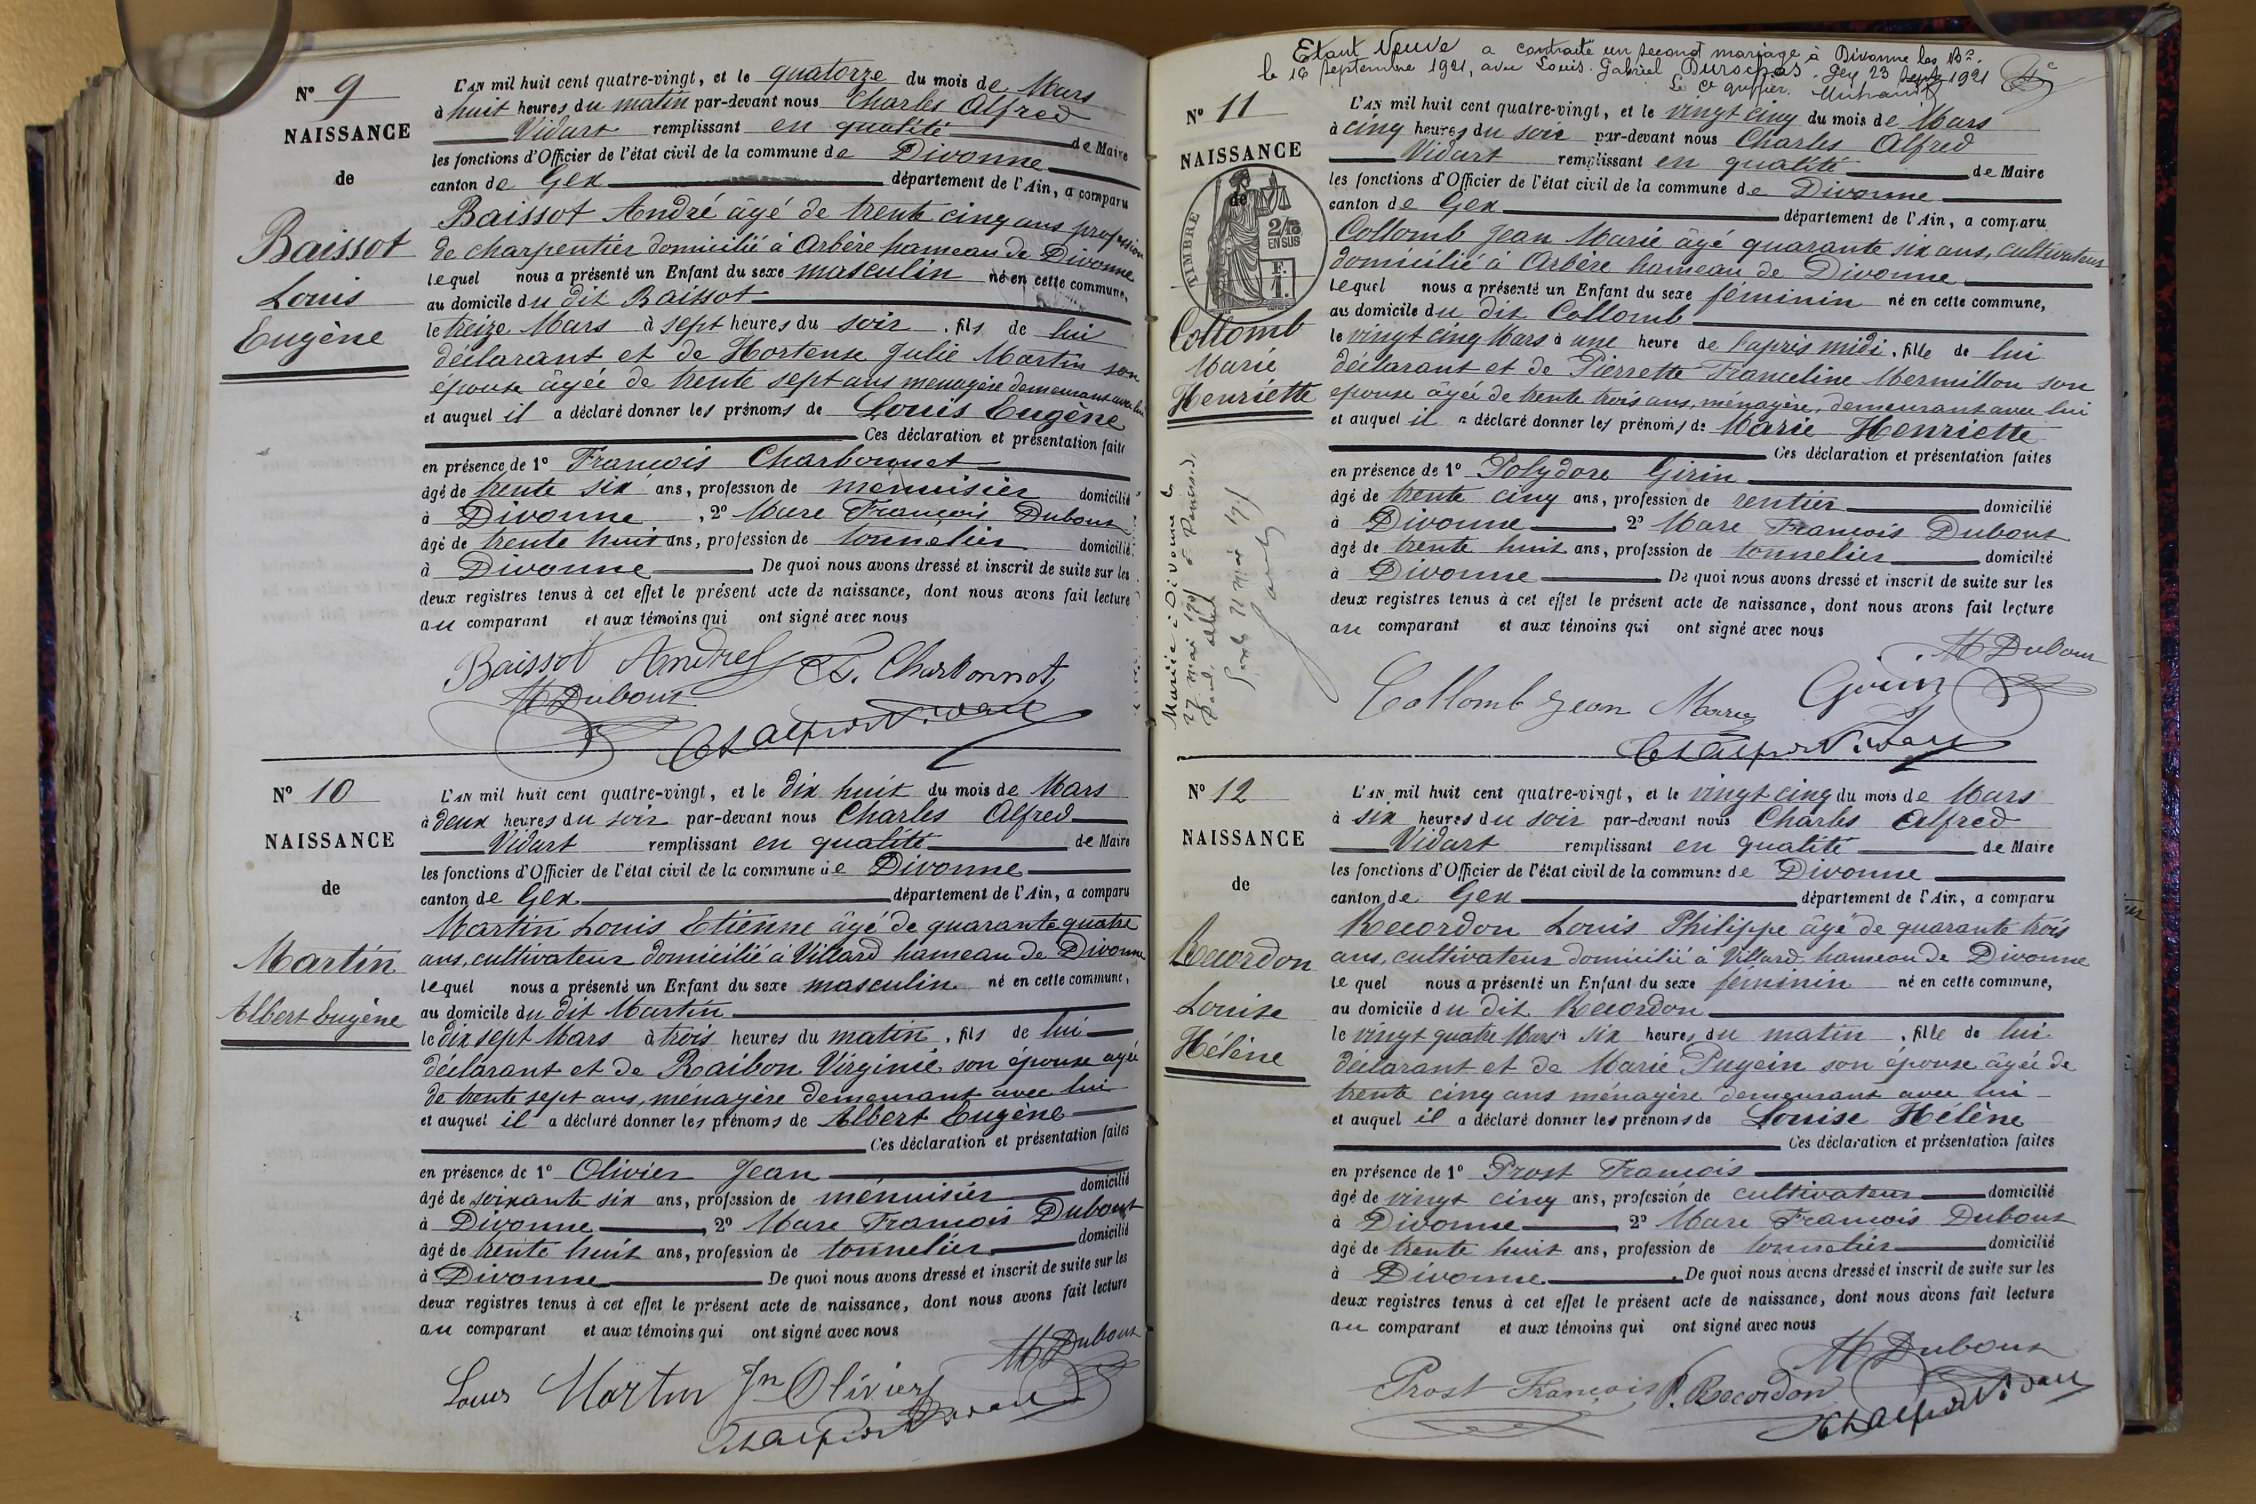 N° 9
NAISSANCE
de
Baissot
Louis
Eugène
L'AN mil huit cent quatre-vingt, et le quatorze du mois de Mars
à huit heures du matin par-devant nous Charles Alfred
Vidart remplissant en qualité de Maire
les fonctions d'Officier de l'état civil de la commune de Divonne
canton de Gex département de l'Ain, a comparu
Baissot André âgé de trente cinq ans profession
de charpentier domicilié à Arbère hameau de Divonne
lequel nous a présenté un Enfant du sexe masculin né en cette commune,
au domicile du dit Baissot
le treize Mars à sept heures du soir, fils de lui
déclarant et de Hortense Julie Martin son
épouse âgée de trente sept ans menagère demeurant avec lui
et auquel il a déclaré donner les prénoms de Louis Eugène
Ces déclaration et présentation faites
en présence de 1° François Charbonnet
âgé de trente six ans, profession de menuisier domicilié
à Divonne, 2° Marc François Dubout
âgé de trente huit ans, profession de tonnelier domicilié
à Divonne De quoi nous avons dressé et inscrit de suite sur les
deux registres tenus à cet effet le présent acte de naissance, dont nous avons fait lecture
au comparant et aux témoins qui ont signé avec nous
Baissot André F. Charbonnet
M Dubout
Ch Alfred Vidart
N° 10
NAISSANCE
de
Martin
Albert Eugène
L'AN mil huit cent quatre-vingt, et le dix huit du mois de Mars
à deux heures du soir par-devant nous Charles Alfred
Vidart remplissant en qualité de Maire
les fonctions d'Officier de l'état civil de la commune de Divonne
canton de Gex département de l'Ain, a comparu
Martin Louis Etienne âgé de quarante quatre
ans, cultivateur domicilié à Villard hameau de Divonne
lequel nous a présenté un Enfant du sexe masculin né en cette commune,
au domicile du dit Martin
le dix sept Mars à trois heures du matin, fils de lui
déclarant et de Raibon Virginie son épouse agée
de trente sept ans, ménagère demeurant avec lui
et auquel il a déclaré donner les prénoms de Albert Eugène
Ces déclaration et présentation faites
en présence de 1° Olivier Jean
âgé de soixante six ans, profession de ménuisier domicilié
à Divonne, 2° Marc François Dubout
âgé de trente huit ans, profession de tonnelier domicilié
à Divonne De quoi nous avons dressé et inscrit de suite sur les
deux registres tenus à cet effet le présent acte de naissance, dont nous avons fait lecture
au comparant et aux témoins qui ont signé avec nous
M Dubout
Louis Martin Jn Olivier
Ch Alfred Vidart
Etant Veuve a contracté un second mariage à Divonne les Bs.
le 16 Septembre 1921, avec Louis Gabriel Durochas. Gex 23 Septe 1921
Le Cs greffier.
N° 11
NAISSANCE
de
TIMBRE
2/10
EN SUS
F.
1.
Collomb
Marie
Henriette
Mariée à Divonne le
27 mai 1901 à
Paul Albert
Gex le 31 mai 1901
L'AN mil huit cent quatre-vingt, et le vingt cinq du mois de Mars
à cinq heures du soir par-devant nous Charles Alfred
Vidart remplissant en qualité de Maire
les fonctions d'Officier de l'état civil de la commune de Divonne
canton de Gex département de l'Ain, a comparu
Collomb Jean Marie âgé quarante six ans, cultivateur
domicilié à Arbère hameau de Divonne
lequel nous a présenté un Enfant du sexe féminin né en cette commune,
au domicile du dit Collomb
le vingt cinq Mars à une heure de l'après midi, fille de lui
déclarant et de Pierrette Franceline Mermillon son
epouse âgée de trente trois ans, ménagère, demeurant avec lui
et auquel il a déclaré donner les prénoms de Marie Henriette
Ces déclaration et présentation faites
en présence de 1° Polydore Girin
âgé de trente cinq ans, profession de rentier domicilié
à Divonne 2° Marc François Dubout
âgé de trente huit ans, profession de tonnelier domicilié
à Divonne De quoi nous avons dressé et inscrit de suite sur les
deux registres tenus à cet effet le présent acte de naissance, dont nous avons fait lecture
au comparant et aux témoins qui ont signé avec nous
M Dubout
Collomb Jean Marie Girin
Ch Alfred Vidart
N° 12
NAISSANCE
de
Recordon
Louise
Hélène
L'AN mil huit cent quatre-vingt, et le vingt cinq du mois de Mars
à six heures du soir par-devant nous Charles Alfred
Vidart remplissant en qualité de Maire
les fonctions d'Officier de l'état civil de la commune de Divonne
canton de Gex département de l'Ain, a comparu
Recordon Louis Philippe âgé de quarante trois
ans, cultivateur domicilié à Villard hameau de Divonne
lequel nous a présenté un Enfant du sexe féminin né en cette commune,
au domicile du dit Recordon
le vingt quatre Mars à six heures du matin, fille de lui
déclarant et de Marie Pugein son épouse âgée de
trente cinq ans ménagère demeurant avec lui
et auquel il a déclaré donner les prénoms de Louise Hélène
Ces déclaration et présentation faites
en présence de 1° Prost François
âgé de vingt cinq ans, profession de cultivateur domicilié
à Divonne 2° Marc François Dubout
âgé de trente huit ans, profession de tonnelier domicilié
à Divonne De quoi nous avons dressé et inscrit de suite sur les
deux registres tenus à cet effet le présent acte de naissance, dont nous avons fait lecture
au comparant et aux témoins qui ont signé avec nous
M Dubout
Prost François P. Recordon
Ch Alfred Vidart